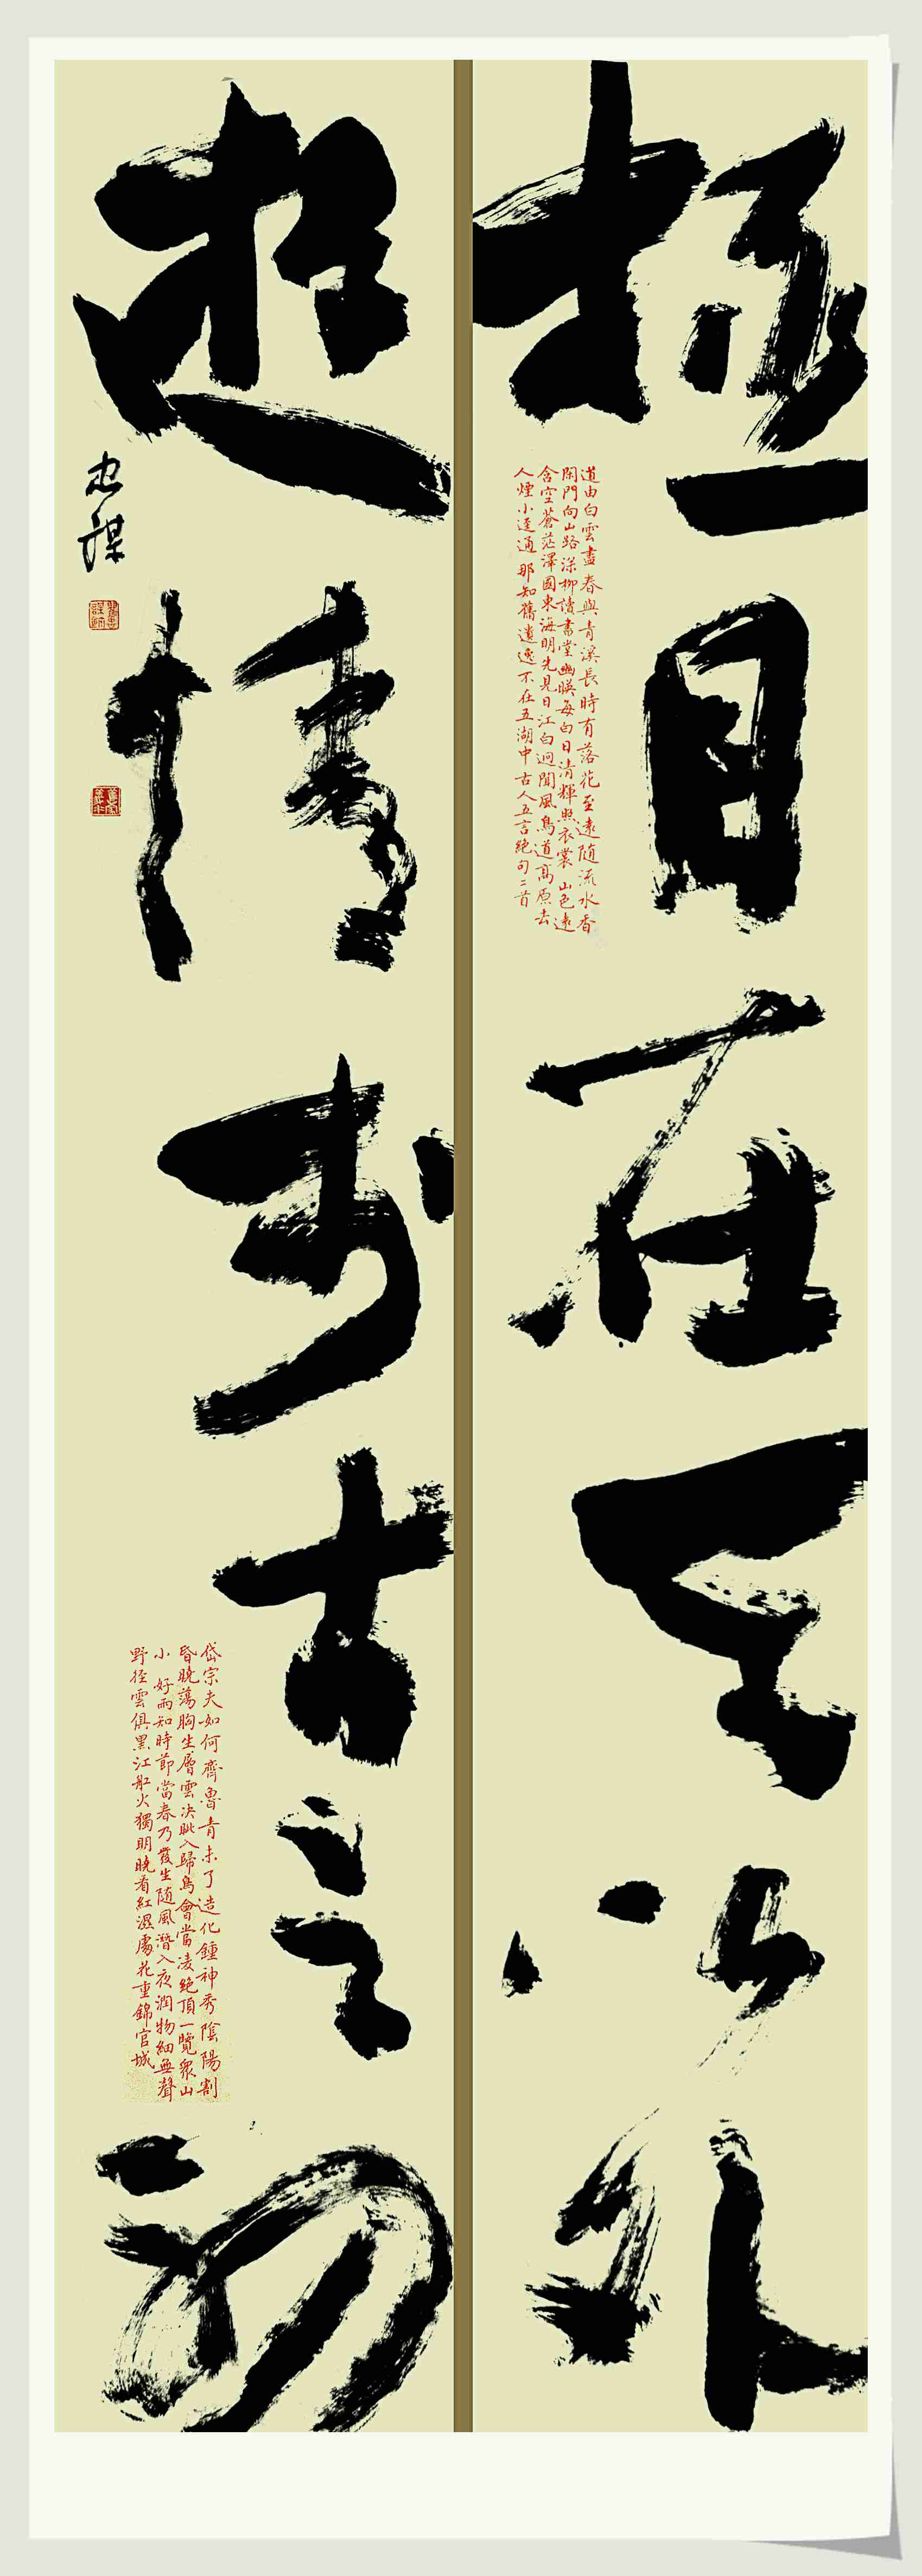 極目在天以外
道由白雲盡春與青溪長時有落花至遠隨流水香
閑門向山路深柳讀書堂幽暎每白日清輝照衣裳 山色遠
含空蒼茫澤國東海明先見日江白迥聞風鳥道高原去
人煙小逕通那知舊遺逸不在五湖中 古人五言絕句二首
遊情於古之初
岱宗夫如何齊魯青未了造化鍾神秀陰陽割
昏曉蕩胸生層雲決眥入歸鳥會當凌絕頂一覽眾山
小 好雨知時節當春乃發生隨風潛入夜潤物細無聲
野徑雲俱黑江船火獨明曉看紅濕處花重錦官城